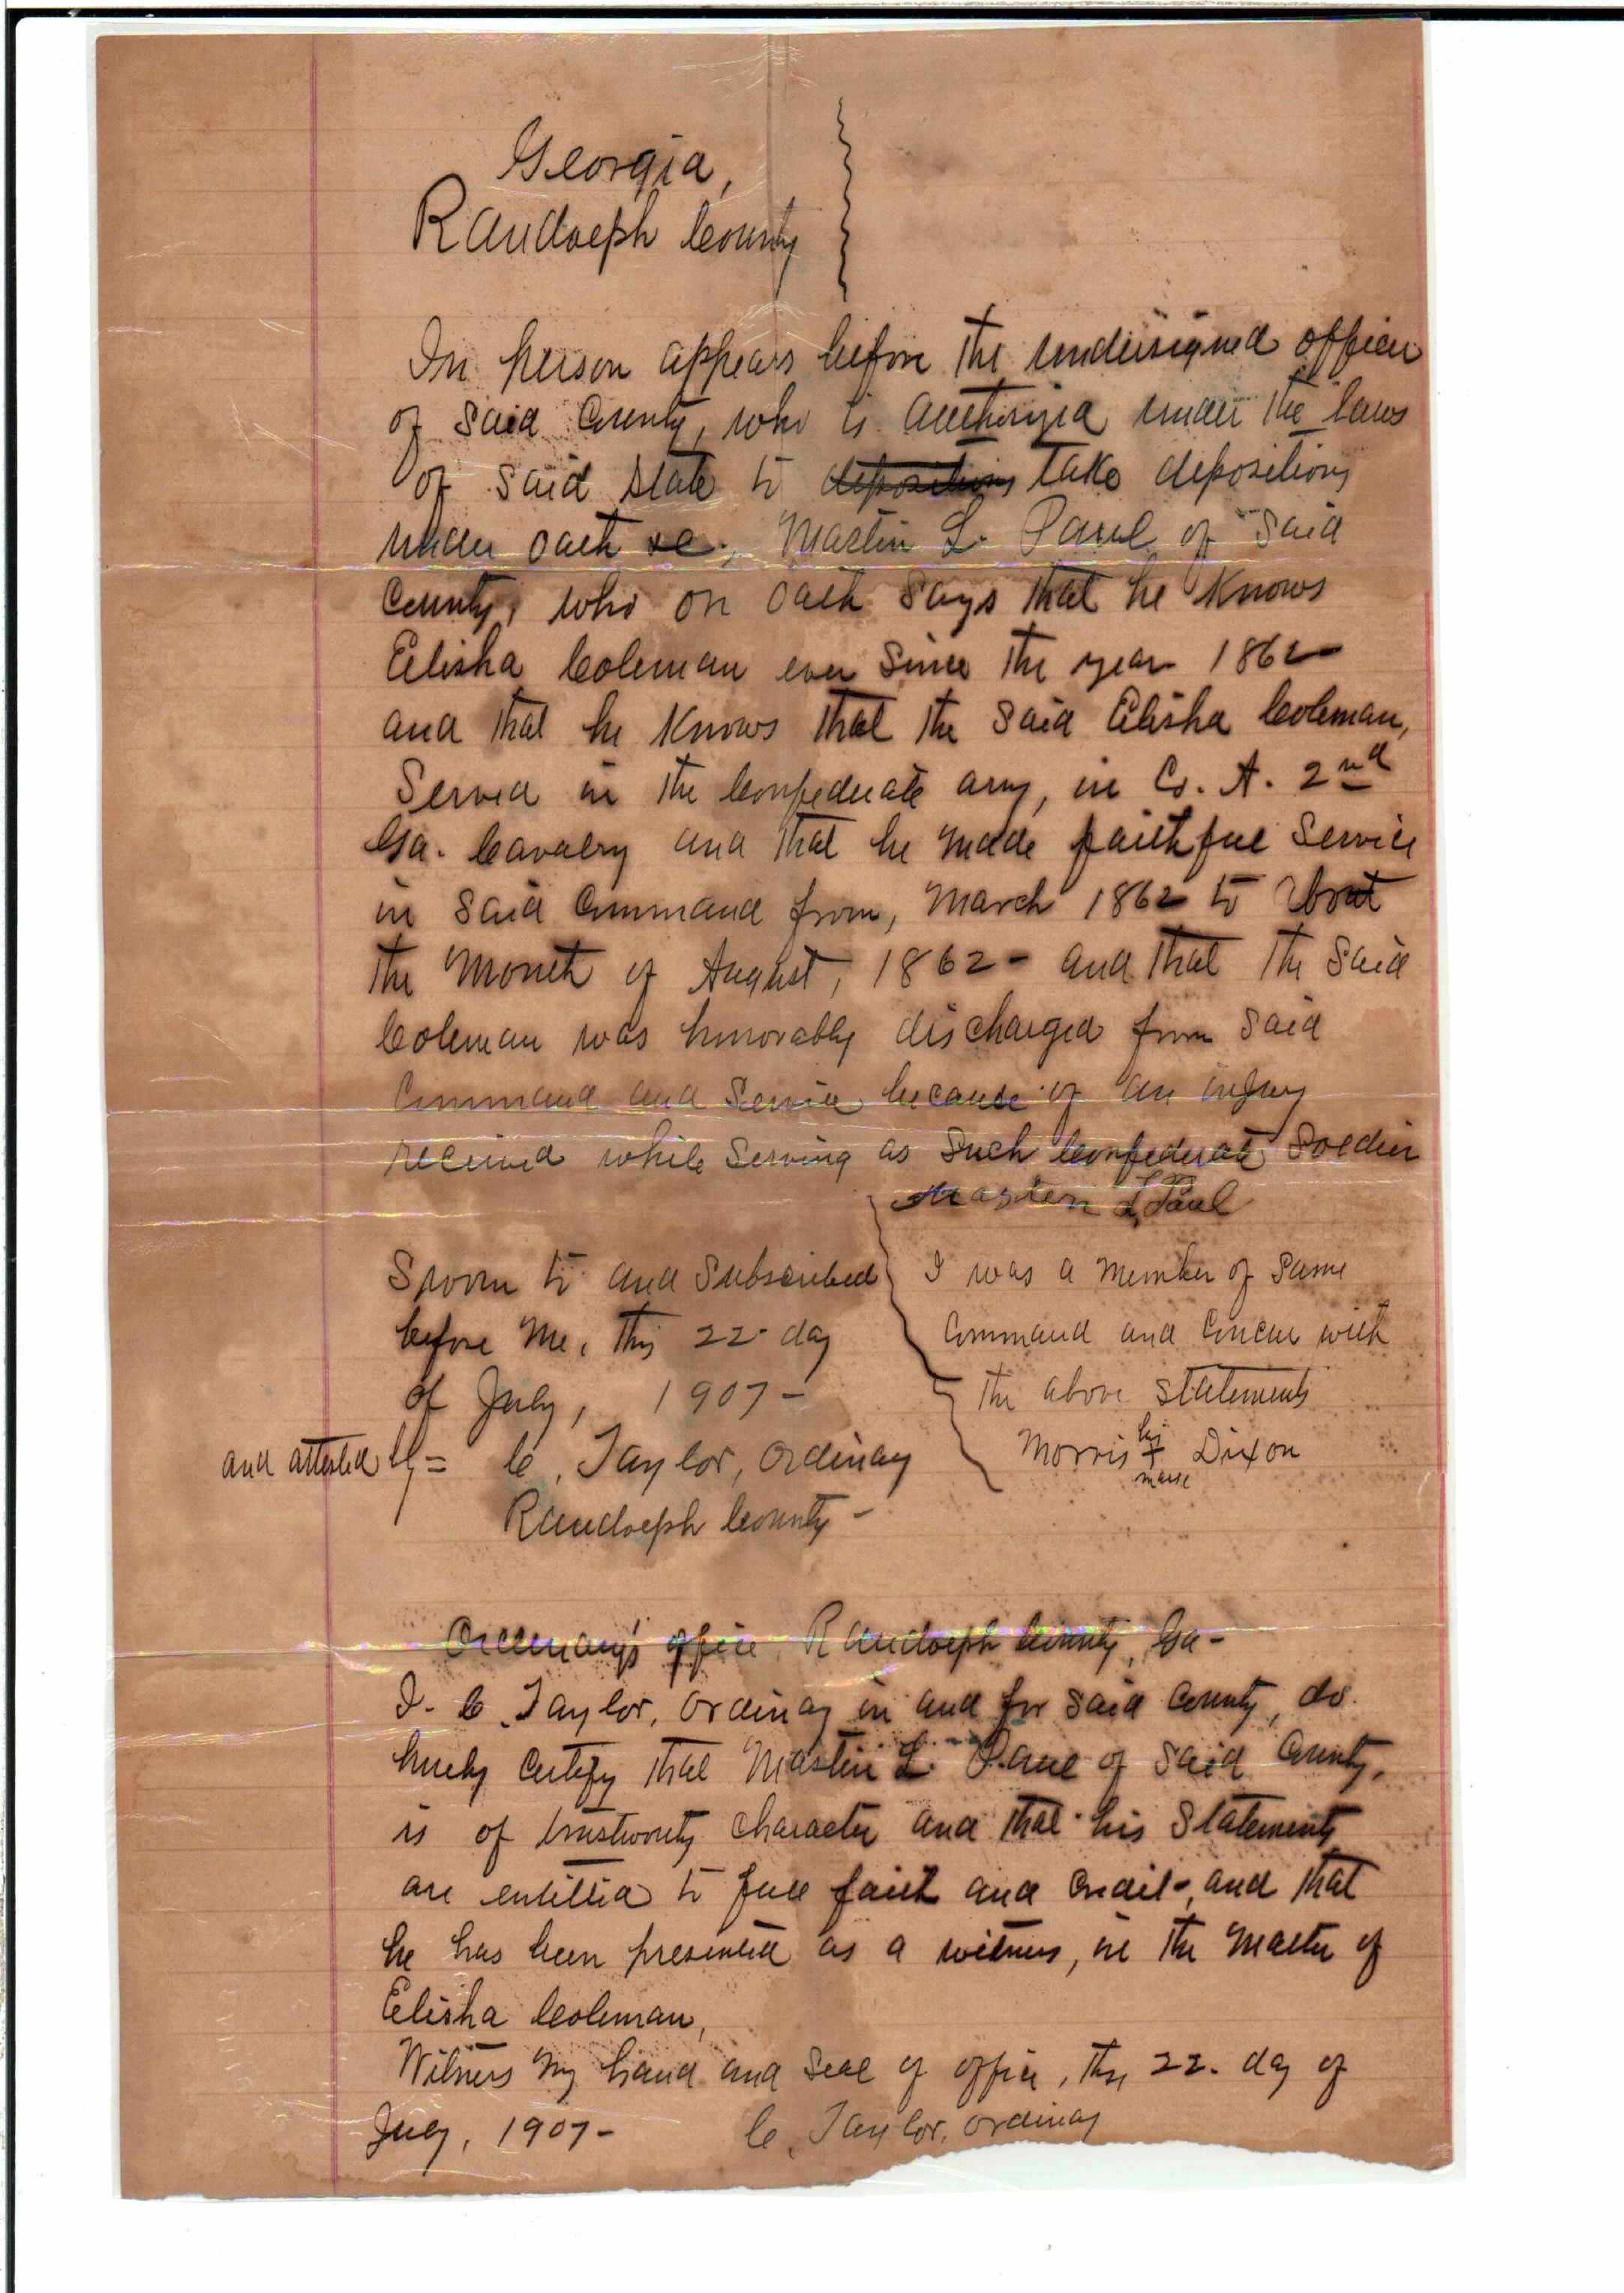 Georgia,
Randolph County
In person appears before the undersigned officer
of said County, who is authorized under the laws
of said state to depositions take depositions
under oath &c., Mastin L. Paul of said
County, who on oath says that he knows
Elisha Coleman ever since the year 1862
and that he knows that the said Elisha Coleman,
Served in the Confederate army, in Co. A. 2nd
Ga. Cavalry and that he made faithful service
in said Command from, March 1862 to about
the month of August, 1862 - and that the said
Coleman was honorably discharged from said
Command and service because of an injury
received while serving as such Confederate soldier
Masten L Paul
Sworn to and subscribed
before me, this 22 day
of July, 1907 -
and attested by = C. Taylor, Ordinary
Randolph County -
I was a member of same
Command and concur with
the above statements
Morris his + mark Dixon
Ordinary's office, Randolph County, Ga -
I. C. Taylor, Ordinary in and for said County, do
hereby certify that Mastin L. Paul of said County,
is of trustworty character and that his statements
are entitled to full faith and credit -, and that
he has been presented as a witness, in the matter of
Elisha Coleman,
Witness my hand and seal of office, this 22. day of
July, 1907 - C. Taylor, Ordinary